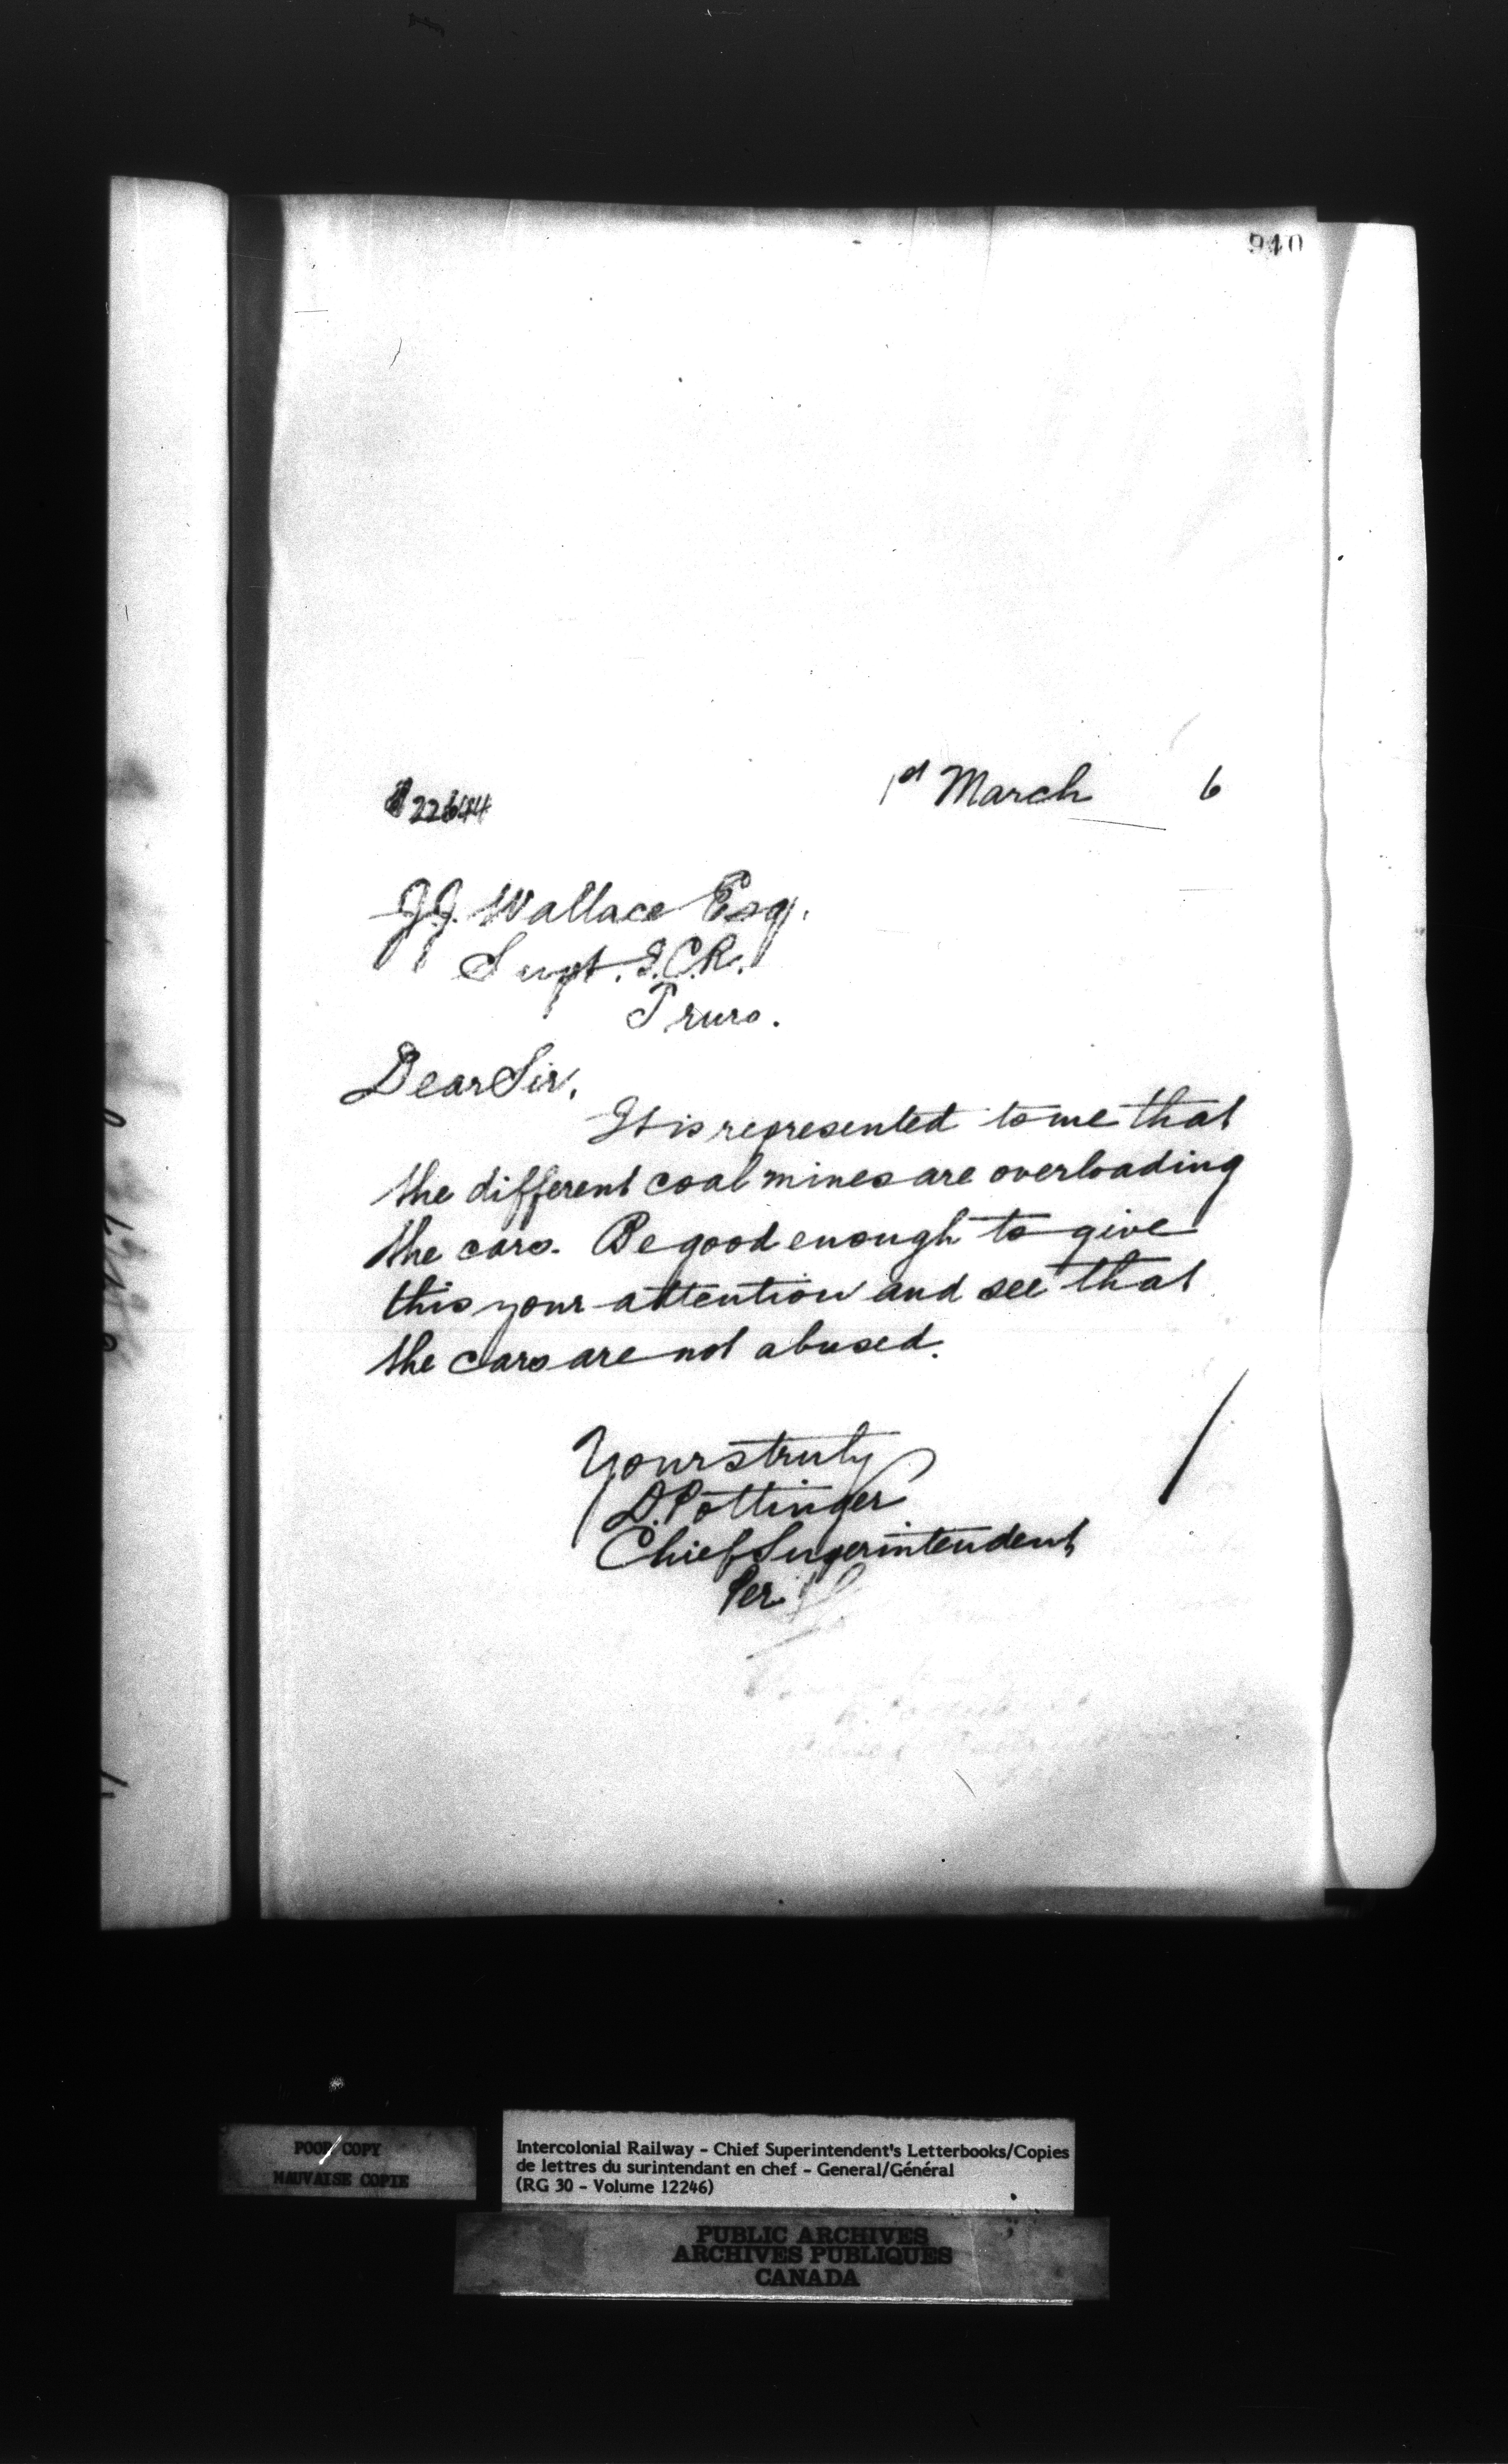 910
1st March 6
22644
J.J. Wallace Esq.
Supt. I.C.R.
Truro.
Dear Sir,
It is represented to me that
the different coal mines are overloading
the cars. Be good enough to give
this your attention and see that
the cars are not abused.
Yours truly
D. Pottinger
Chief Superintendent
Per
POOR COPY
MAUVAISE COPIE
Intercolonial Railway - Chief Superintendent's Letterbooks/Copies
de lettres du surintendant en chef - General/Général
(RG 30 - Volume 12246)
PUBLIC ARCHIVES
ARCHIVES PUBLIQUES
CANADA